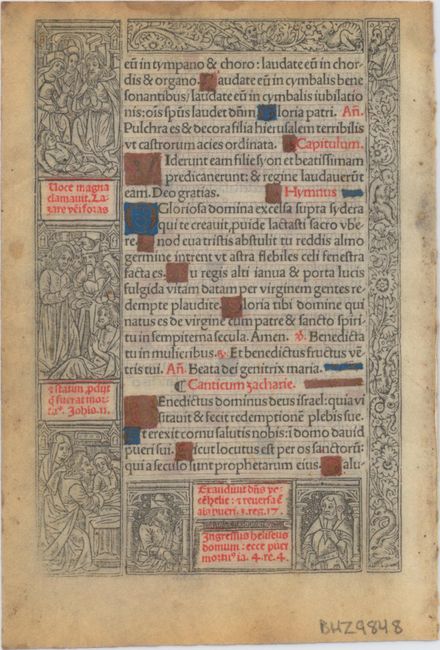 eū in tympano & choro: laudate eū in chor-
dis & organo. Laudate eū in cymbalis bene
sonantibus/ laudate eū in cymbalis iubilatio
nis: ois spūs laudet dn̄m Gloria patri. An̄.
Pulchra es & decora filia hierusalem terribilis
vt castrorum acies ordinata. Capitulum.
VIderunt eam filie syon et beatissimam
predicauerunt: & regine laudauerūt
eam. Deo gratias. Hymnus
O Gloriosa domina excelsa supra sydera
qui te creauit, puide lactasti sacro vbe-
re. Quod eua tristis abstulit tu reddis almo
germine intrent vt astra flebiles celi fenestra
facta es. Tu regis alti ianua & porta lucis
fulgida vitam datam per virginem gentes re-
dempte plaudite. Gloria tibi domine qui
natus es de virgine cum patre & sancto spiri-
tu in sempiterna secula. Amen. ℣. Benedicta
tu in mulieribus. ℟. Et benedictus fructus vē
tris tui. An̄. Beata dei genitrix maria.
¶ Canticum zacharie.
BEnedictus dominus deus israel: quia vi
sitauit & fecit redemptionē plebis sue.
Et erexit cornu salutis nobis: i domo dauid
pueri sui. Sicut locutus est per os sanctorū:
qui a seculo sunt prophetarum eius. Salu-
Uoce magna
clamauit. La-
zare vēi foras
Et statim, pdijt
q̄ fuerat mor-
tu9. Johīs. 11.
Exaudiuit dn̄s vo-
cē helie: & reuersa ē
aīa pueri. 3. reg. 17.
Ingressus heliseus
domum: ecce puer
mortu9 ia. 4. re. 4.
BHZ9848